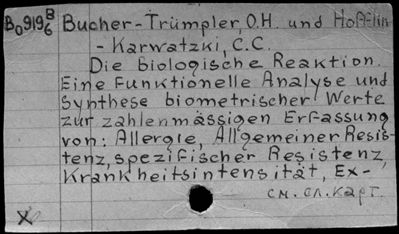 B₀919⁸₆ Bucher-Trümpler, O.H. und Hofflin
- Karwatzki, C.C.
Die biologische Reaktion.
Eine funktionelle Analyse und
Synthese biometrischer Werte
zur zahlenmässigen Erfassung
von: Allergie, Allgemeiner Resis-
tenz, spezifischer Resistenz,
Krankheitsintensität, Ex-
см. сл. карт.